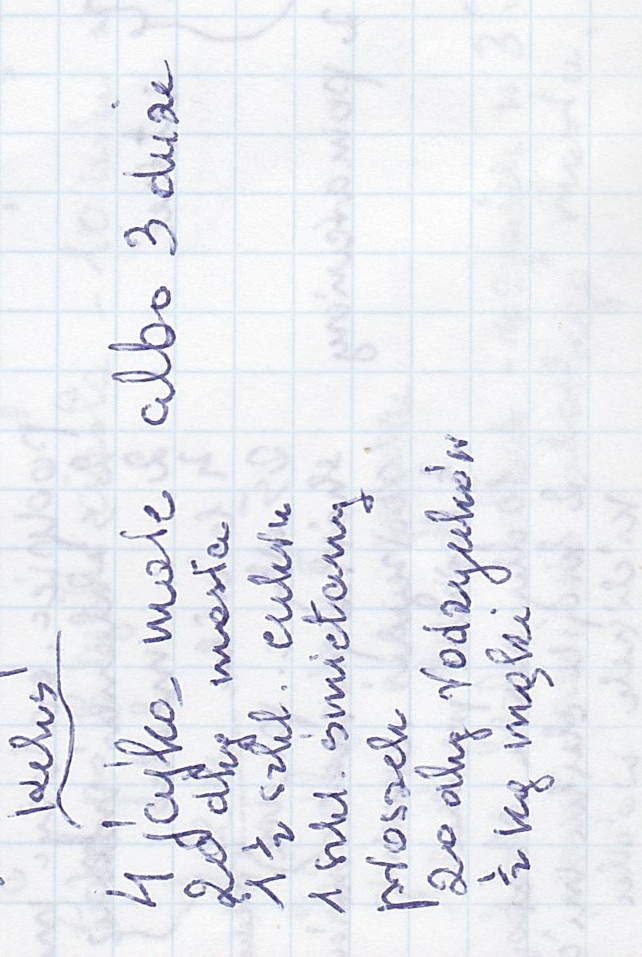 Keks
4 jajka małe albo 3 duże
20 dkg masła
1 ½ szkl. cukru
1 szkl. śmietany
proszek
20 dkg rodzynków
½ kg mąki